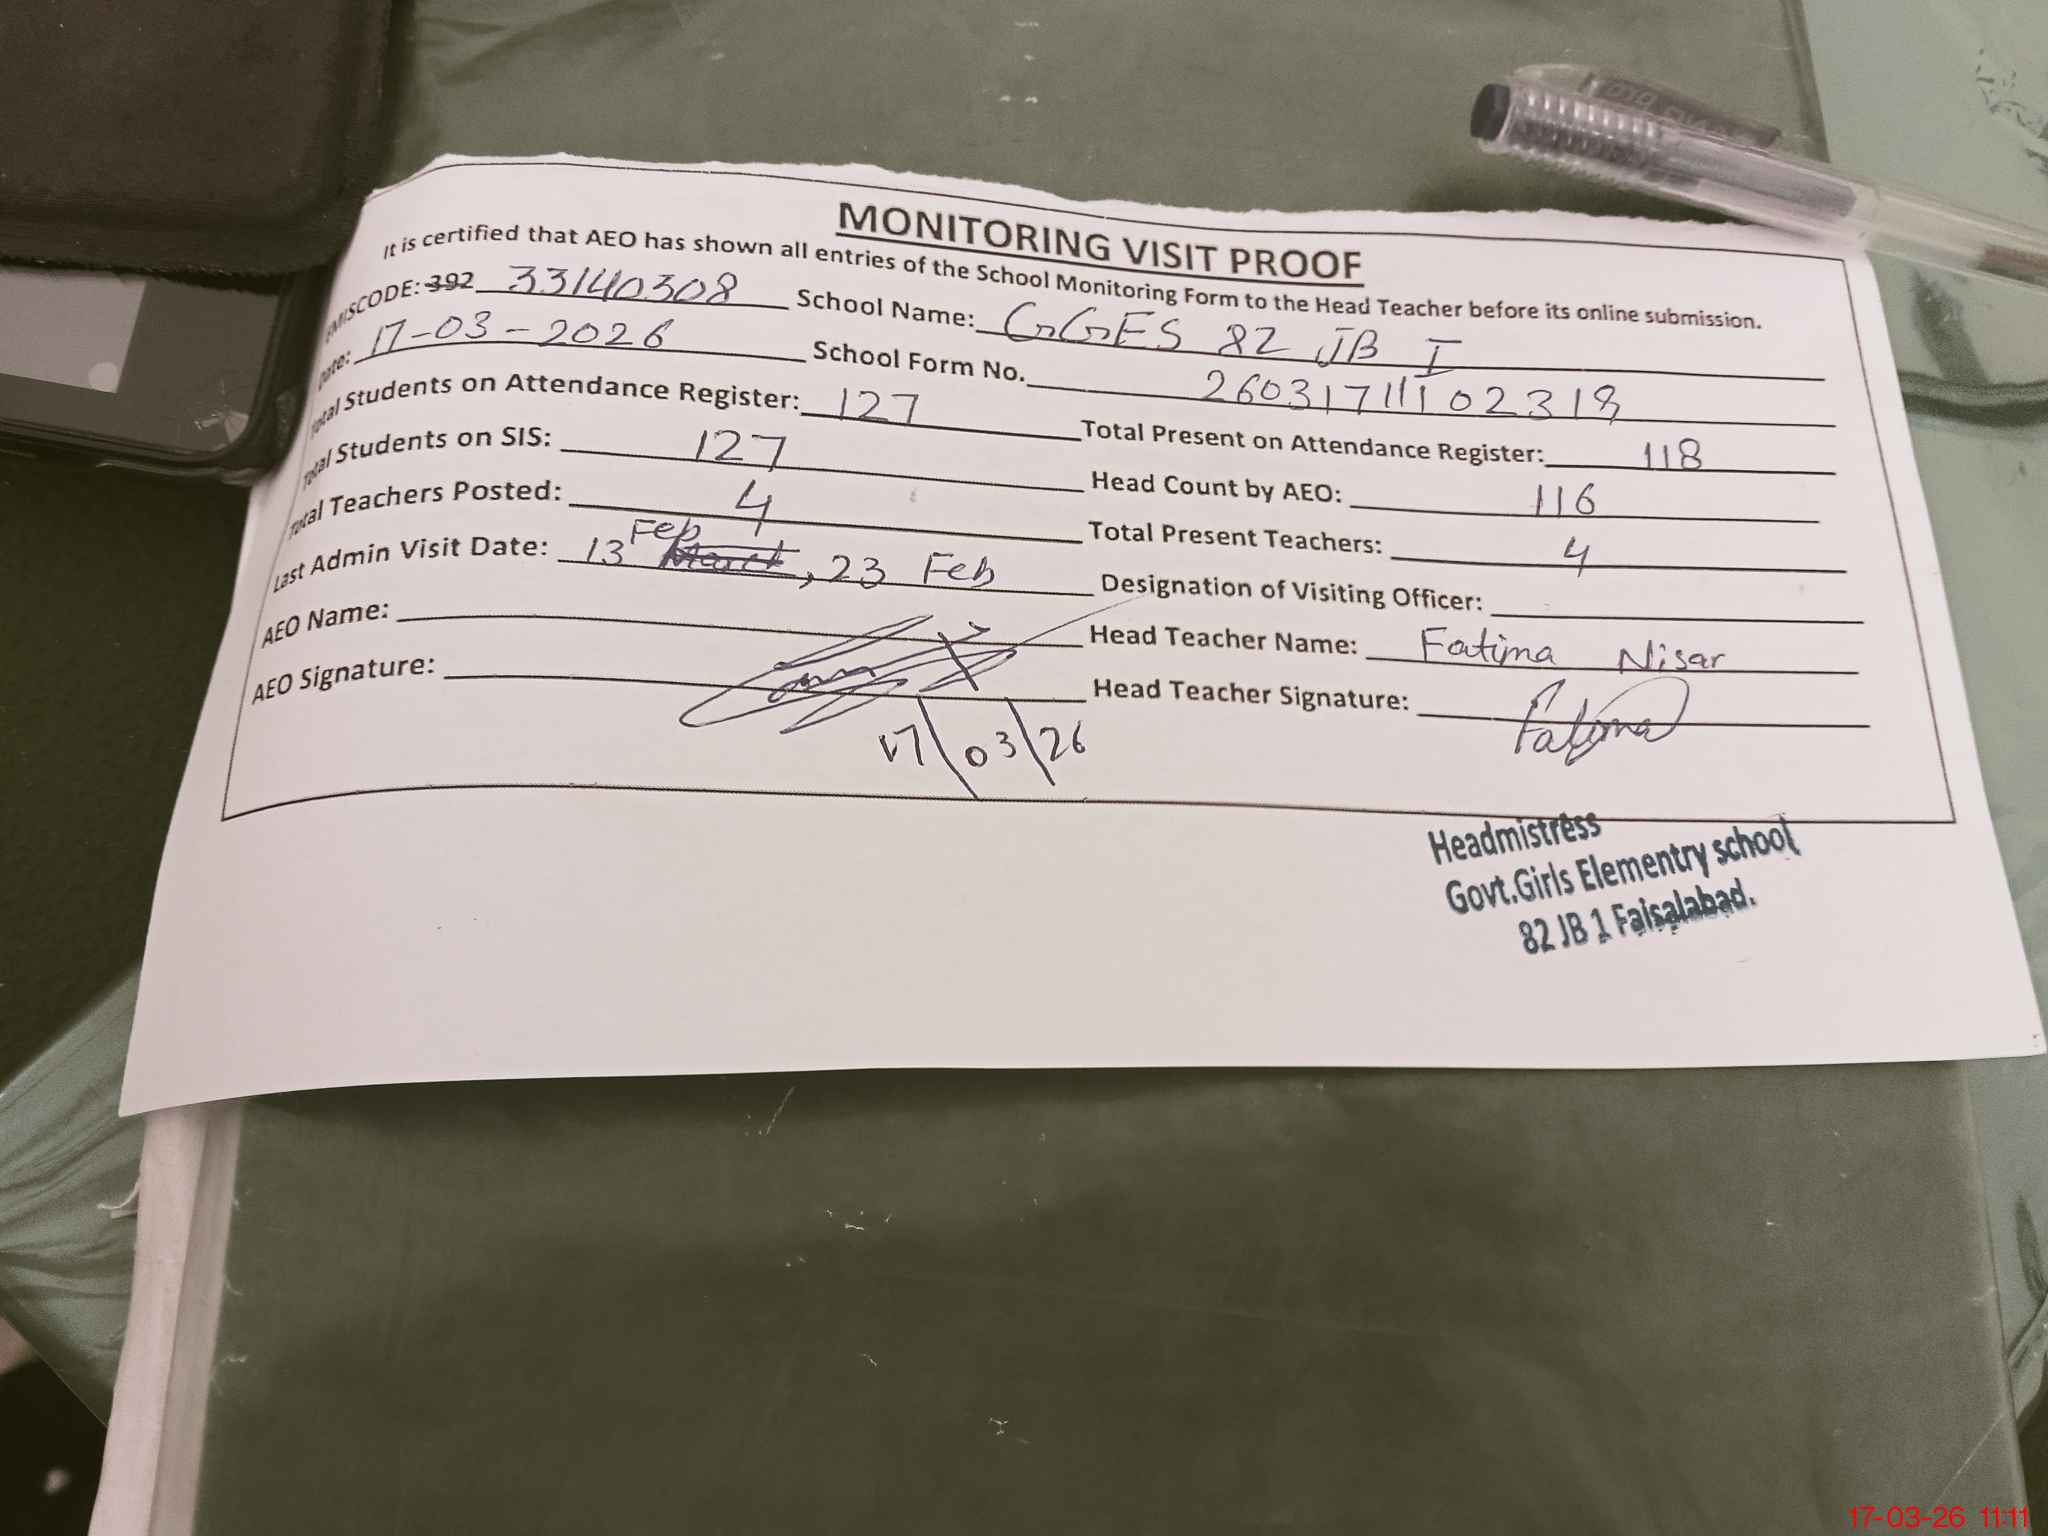 MONITORING VISIT PROOF
It is certified that AEO has shown all entries of the School Monitoring Form to the Head Teacher before its online submission.
EMISCODE: 392 33140308 School Name: GGES 82 JB I
Date: 17-03-2026 School Form No. 260317111102318
Total Students on Attendance Register: 127 Total Present on Attendance Register: 118
Total Students on SIS: 127 Head Count by AEO: 116
Total Teachers Posted: 4 Total Present Teachers: 4
Last Admin Visit Date: 13 Feb March, 23 Feb Designation of Visiting Officer:
AEO Name: Head Teacher Name: Fatima Nisar
AEO Signature: Head Teacher Signature: Fatima
17/03/26
Headmistress
Govt.Girls Elementry school
82 JB 1 Faisalabad.
17-03-26 11:11